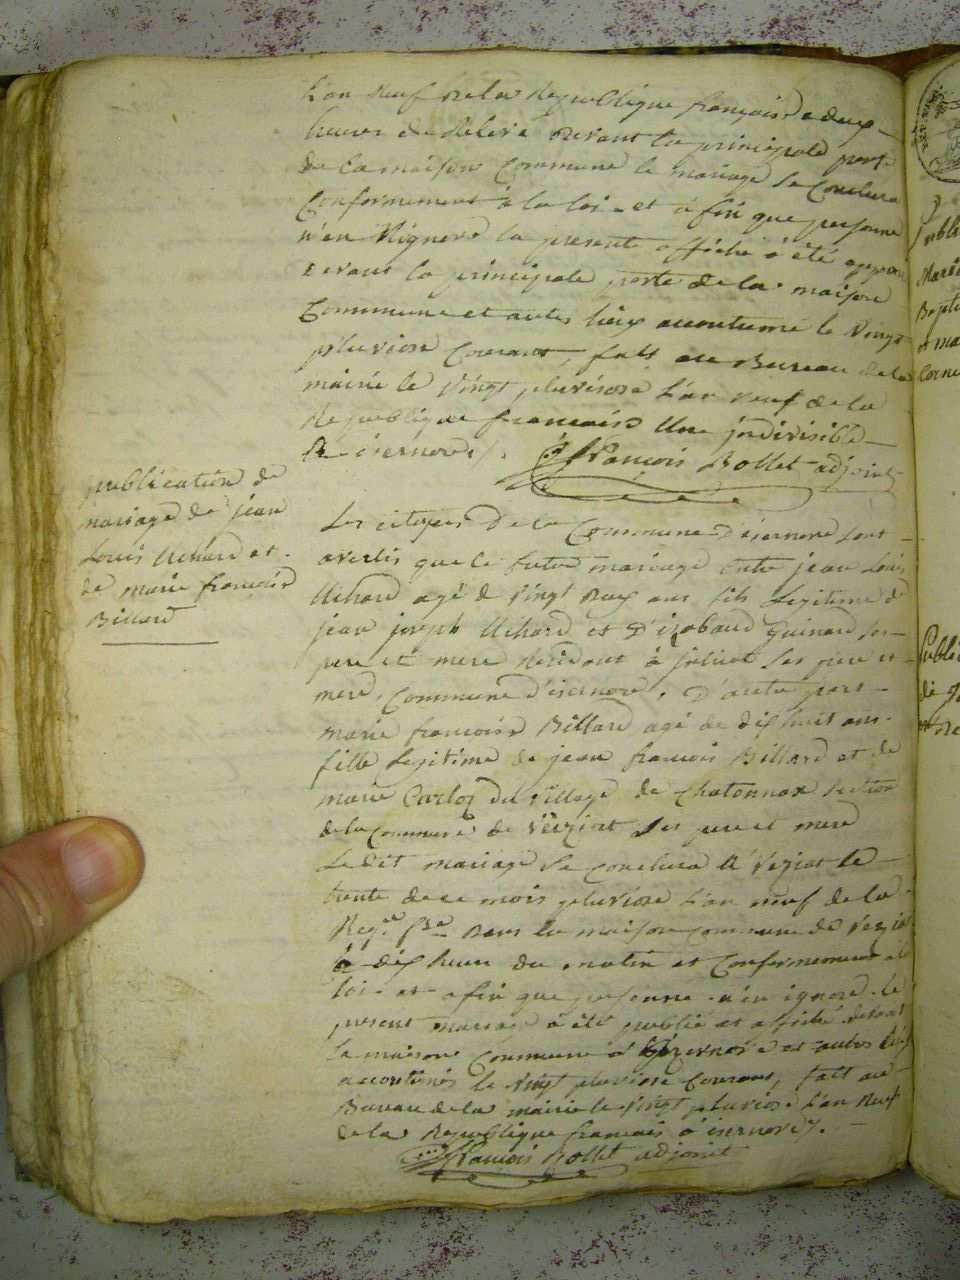 L'an neuf de la Republique francaise a deux
heures de Relevé devant la principale porte
de la maison Commune le mariage se Conclura
Conformement à la loi et afin que personne
n'en Nignore la presente affiche à été apposé
devant la principale porte de la maison
Commune et autes lieux accoutumé le Vingt
pluviose Courant, fait au Bureau de la
mairie le Vingt pluviose L'an neuf de la
Republique francaise Une indivisible
à isernore
françois Bollet adjoint
publication de
mariage de jean
Louis Uchard et
de marie françoise
Billard
Les citoyens De la Commune D'isernore sont
avertis que le futur mariage entre jean Louis
Uchard agé de Vingt deux ans fils Legitime de
jean joseph Uchard et D'isabaud Guinard ses
pere et mere Residant à ses pere et
mere, Commune d'isernore, D'autre part
marie françoise Billard agé de dix huit ans
fille Legitime de jean françois Billard et de
marie Carloz du village de Chatonnax section
de la Commune de Veiziat ses pere et mere
Le dit mariage se Conclura à Veziat le
trente de ce mois pluviose L'an neuf de la
Rep.e f.se Dans la maison commune de Veziat
à dix heure du matin et Conformement à la
loi et afin que personne n'en ignore le
present mariage à été publié et affiché devant
la maison Commune d'izernore et autes lieux
accoutumés le vingt pluviose Courant, fait au
Bureau de la mairie le Vingt pluviose L'an Neuf
de la Republique francais à isernore
françois Bollet adjoint
publi
Mari
Bapti
et ma
Corne
Publi
de